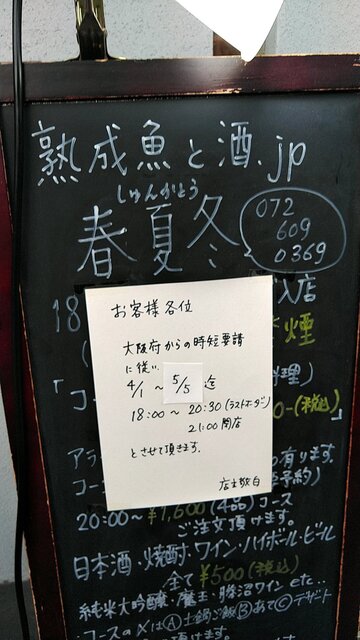 熟成魚と酒.jp
しゅんかとう
春夏冬
072
609
0369
18
入店
煙
お客様各位
大阪府からの時短要請
に従い
4/1 ～ 5/5 迄
18:00 ～ 20:30 (ラストオーダー)
21:00 閉店
とさせて頂きます。
店主敬白
料理)
「コ
(税込)
アラ
の有ります。
コー
予約)
20:00～ ¥1,600 (4品) コース
ご注文頂けます。
日本酒・焼酎・ワイン・ハイボール・ビール
全て ¥500 (税込)
純米大吟醸・魔王・勝沼ワイン etc..
コースの〆は Ⓐ土鍋ご飯 Ⓑあて Ⓒデザート